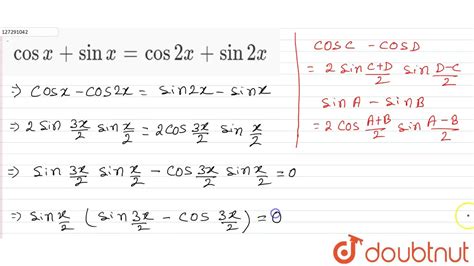 127291042
cos x + sin x = cos 2x + sin 2x
⇒ cosx - cos2x = sin2x - sinx
⇒ 2 sin 3x/2 sin x/2 = 2cos 3x/2 sin x/2
⇒ sin 3x/2 sin x/2 - cos 3x/2 sin x/2 = 0
⇒ sin x/2 (sin 3x/2 - cos 3x/2) = 0
cosC - cosD
= 2 sin C+D/2 sin D-C/2
sinA - sinB
= 2 cos A+B/2 sin A-B/2
doubtnut